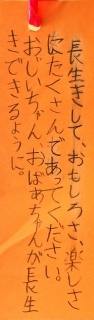 長生きして、おもしろさ、楽しさ
にたくさんであってください。
おじいちゃん、おばあちゃんが長生
きできるように。